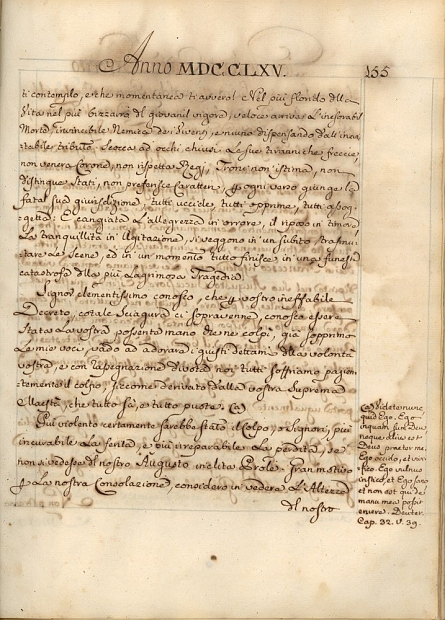 Anno MDCCLXV.
155
ti contemplo, e che momentanea ti avvera! Nel più florido della
Vita nel più bizzarro del giovanil vigore, veloce arriva L'inesorabil
Morte Invincibile Nemica de' Viventi, e niuno dispensando dall'
tributo, Scocca ad occhi chiusi Le sue tiranniche freccie,
non venera Corone, non rispetta Regi, Troni non stima, non
distingue Stati, non preferisce Caratteri, p ogni verso spinge la
fatal sua giurisdizione, tutti uccide, tutti opprime, tutti assog-
getta: E cangiata L'allegrezza in orrore, il riposo in timore,
La tranquillità in Agitazione, si veggono in un subito trasmu-
tare Le Scene, ed in un momento tutto finisce in una funesta
catastrofe della più Lagrimosa Tragedia.
Signor Clementissimo conosco, che p vostro ineffabile
Decreto, cotale Sciagura ci sopravenne, conosco essere
stata La vostra possente mano che ne colpì, già sopprimo
Le mie voci, vado ad adorare i giusti dettami della volontà
vostra, e con rassegnazione Divota noi tutti soffriamo pazien-
temente il colpo, siccome derivato dalla vostra Suprema
Maestà, che tutto sà, e tutto puote. (a)
Più violento certamente sarebbe stato il Colpo, o Signori, più
incurabile La ferita, e più irreparabile La perdita, se
non si vedesse del nostro Augusto inclita Prole. Gran motivo
p La nostra Consolazione, considero in vedere L'Altezza
del nostro
(a) Videte nunc,
quod Ego, Ego
inquam sim Deus
neque alius est
Deus præter me:
Ego occido, et vivi-
fico. Ego vulnus
infligo, et Ego sano
et non est qui de
manu mea possit
eruere. Deuter.
Cap. 32. V. 39.